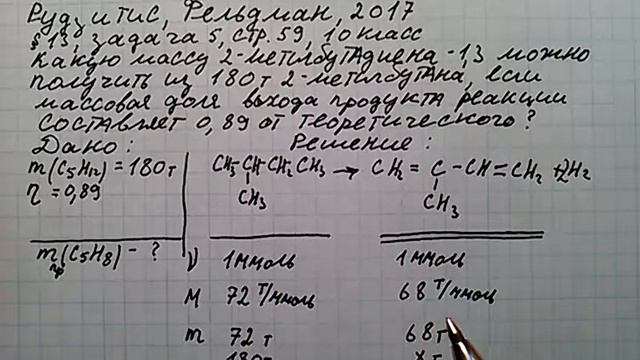 Рудзитис, Фельдман, 2017
§13, задача 5, стр. 59, 10 класс
Какую массу 2-метилбутадиена-1,3 можно
получить из 180 т 2-метилбутана, если
массовая доля выхода продукта реакции
составляет 0,89 от теоретического?
Дано: Решение:
m(C5H12) = 180 т CH3-CH-CH2CH3 → CH2 = C - CH = CH2 + 2H2
η = 0,89 CH3 CH3
mпр(C5H8) - ? ν 1 ммоль 1 ммоль
M 72 т/ммоль 68 т/ммоль
m 72 т 68 т
180т х т